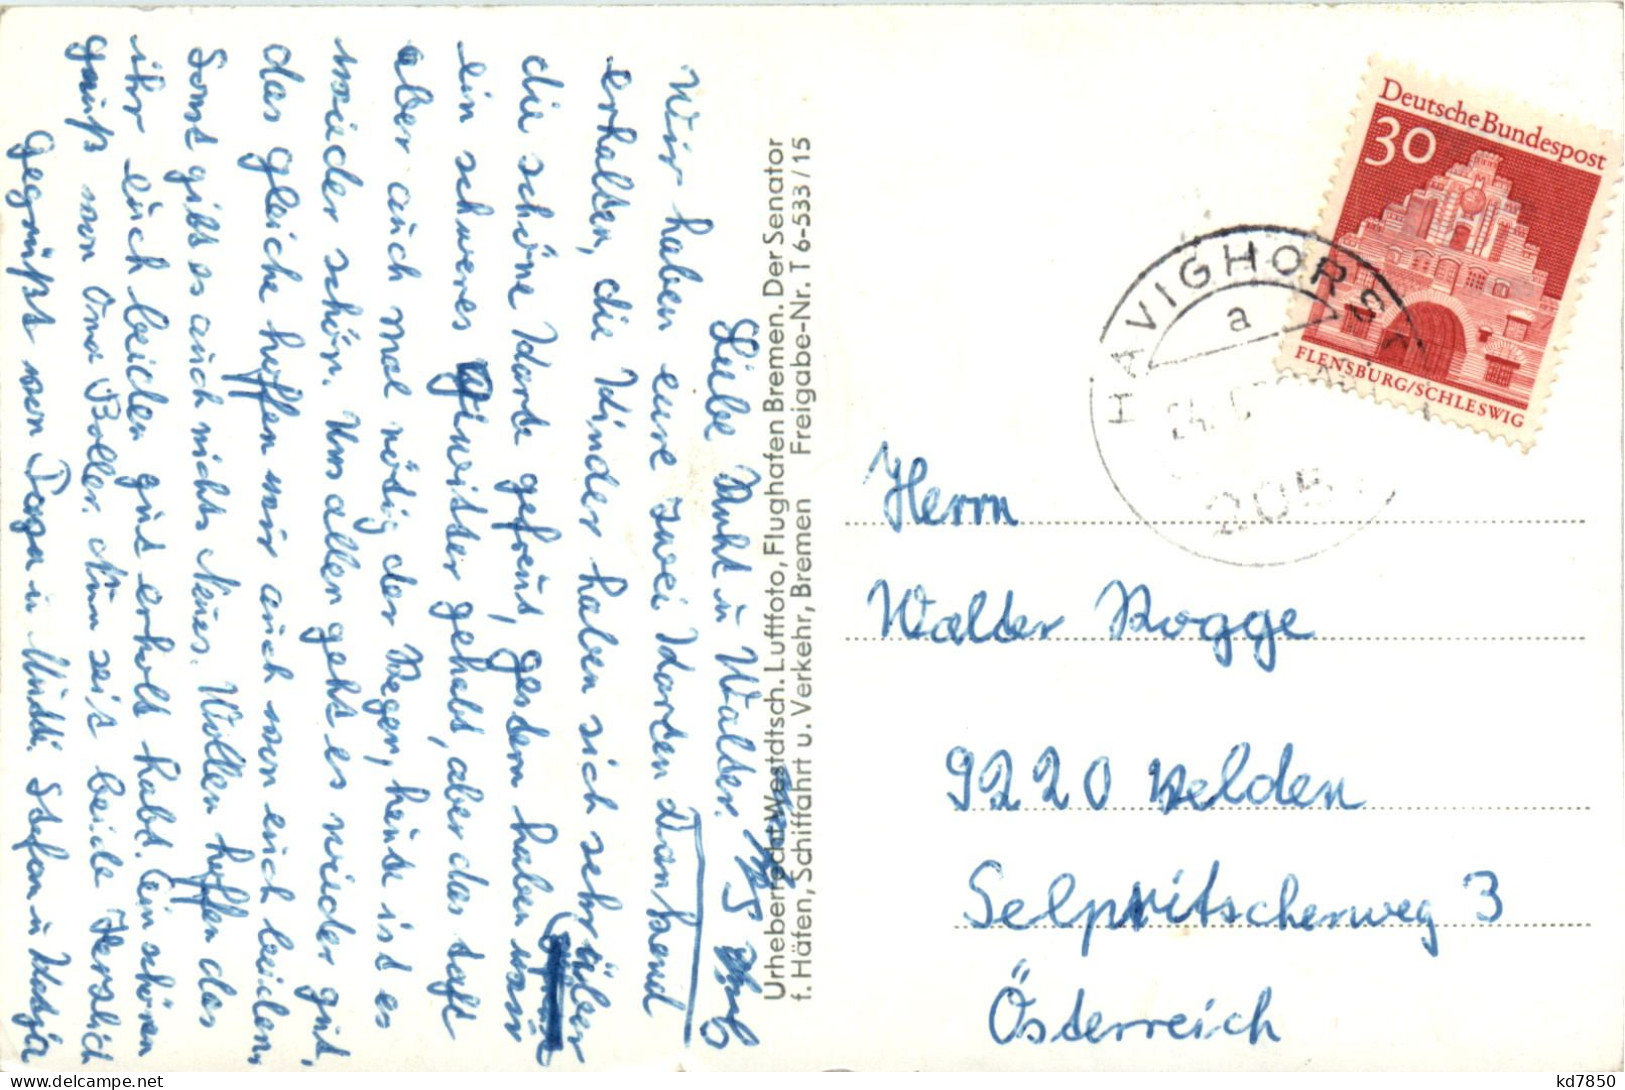 Liebe Ruht u Walter.
Wir haben eure zwei Karten Dankend
erhalten, die Kinder haben sich sehr über
die schöne Karte gefreut, gestern haben wir
ein schweres Gewitter gehabt, aber das taft
aber auch mal nötig der Regen, heute ist es
wieder schön. Um aller geht es wieder gut,
das gleiche hoffen wir auch von euch beiden,
Sonst gibt es auch nichts Neues. Wollen hoffen das
ihr euch beiden gut erholt habt. Ein schönen
gruß von Oma Boller. Nun seit beide Herzlich
gegrüßt von Papa u Mutti. Stefan u Katja
Urheberrecht Westdtsch. Luftfoto, Flughafen Bremen. Der Senator
f. Häfen, Schiffahrt u. Verkehr, Bremen Freigabe-Nr. T 6-533/15
Deutsche Bundespost
30
FLENSBURG/SCHLESWIG
HAVIGHORST
a
24.
205
Herrn
Walter Rogge
9220 Velden
Selpritscherweg 3
Österreich
kd7850